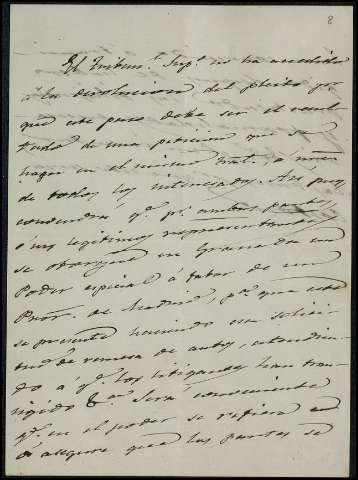 8
El Tribun.l Sup.r no ha accedido
á la devolucion del pleito, p.r
que este paso debe ser el resul-
tado de una peticion que se
haga en el mismo Trib.l á nom.e
de todos los interesados. Así pues
convendrá q.e p.r ambas partes,
ó sus legitimos representantes
se otorgue en Granada un
Poder especial á favor de un
Proc.r de Madrid, p.a que este
se presente haciendo esa solici-
tud de remesa de autos, atendien-
do a q.e los litigantes han tran-
sigido &.a Será conveniente
q.e en el poder se refiera ó
se asegure que las partes se